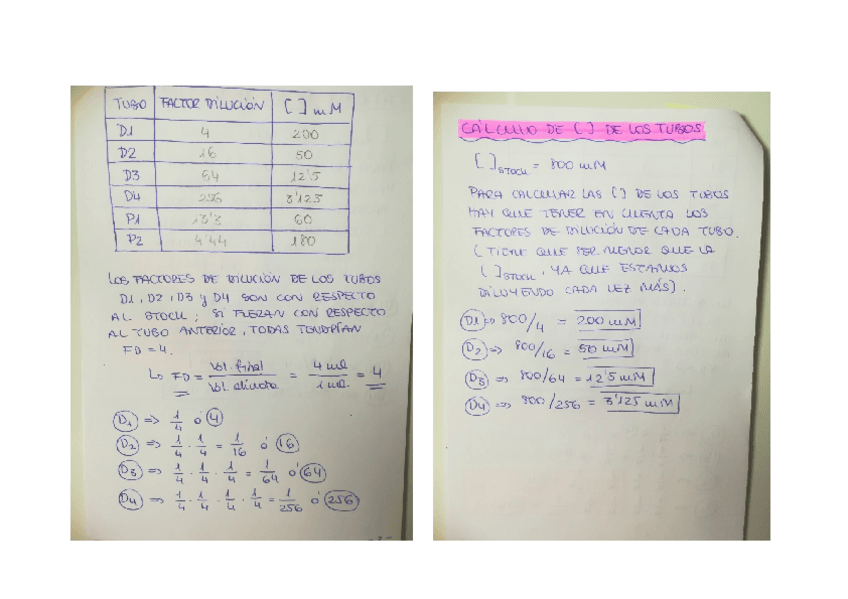 TUBO FACTOR DILUCIÓN [ ] mM
D1 4 200
D2 16 50
D3 64 12'5
D4 256 3'125
P1 13'3 60
P2 4'44 180
LOS FACTORES DE DILUCIÓN DE LOS TUBOS
D1, D2, D3 y D4 SON CON RESPECTO
AL STOCK; SI FUERAN CON RESPECTO
AL TUBO ANTERIOR, TODAS TENDRÍAN
FD = 4.
↳ FD = Vol. final / Vol. alícuota = 4 ml / 1 ml = 4
D1 => 1/4 ó 4
D2 => 1/4 · 1/4 = 1/16 ó 16
D3 => 1/4 · 1/4 · 1/4 = 1/64 ó 64
D4 => 1/4 · 1/4 · 1/4 · 1/4 = 1/256 ó 256
CÁLCULO DE [ ] DE LOS TUBOS
[ ]STOCK = 800 mM
PARA CALCULAR LAS [ ] DE LOS TUBOS
HAY QUE TENER EN CUENTA LOS
FACTORES DE DILUCIÓN DE CADA TUBO.
(TIENE QUE SER MENOR QUE LA
[ ]STOCK, YA QUE ESTAMOS
DILUYENDO CADA VEZ MÁS).
D1 => 800/4 = 200 mM
D2 => 800/16 = 50 mM
D3 => 800/64 = 12'5 mM
D4 => 800/256 = 3'125 mM